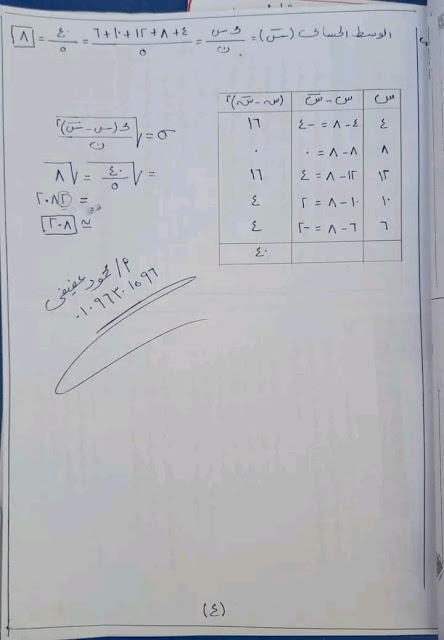 الوسط الحسابى (س̄) = مجـ س / ن = ٤ + ٨ + ١٢ + ١٠ + ٦ / ٥ = ٤٠ / ٥ = ٨
س | س - س̄ | (س - س̄)٢
٤ | ٤ - ٨ = -٤ | ١٦
٨ | ٨ - ٨ = ٠ | ٠
١٢ | ١٢ - ٨ = ٤ | ١٦
١٠ | ١٠ - ٨ = ٢ | ٤
٦ | ٦ - ٨ = -٢ | ٤
٤٠
σ = √ مجـ (س - س̄)٢ / ن
= √ ٤٠ / ٥ = √ ٨
= ٢٠٨٢
≃ ٢٠٨
م / محمود عفيفى
٠١٠٩٦٣٠١٥٩٦
(٤)